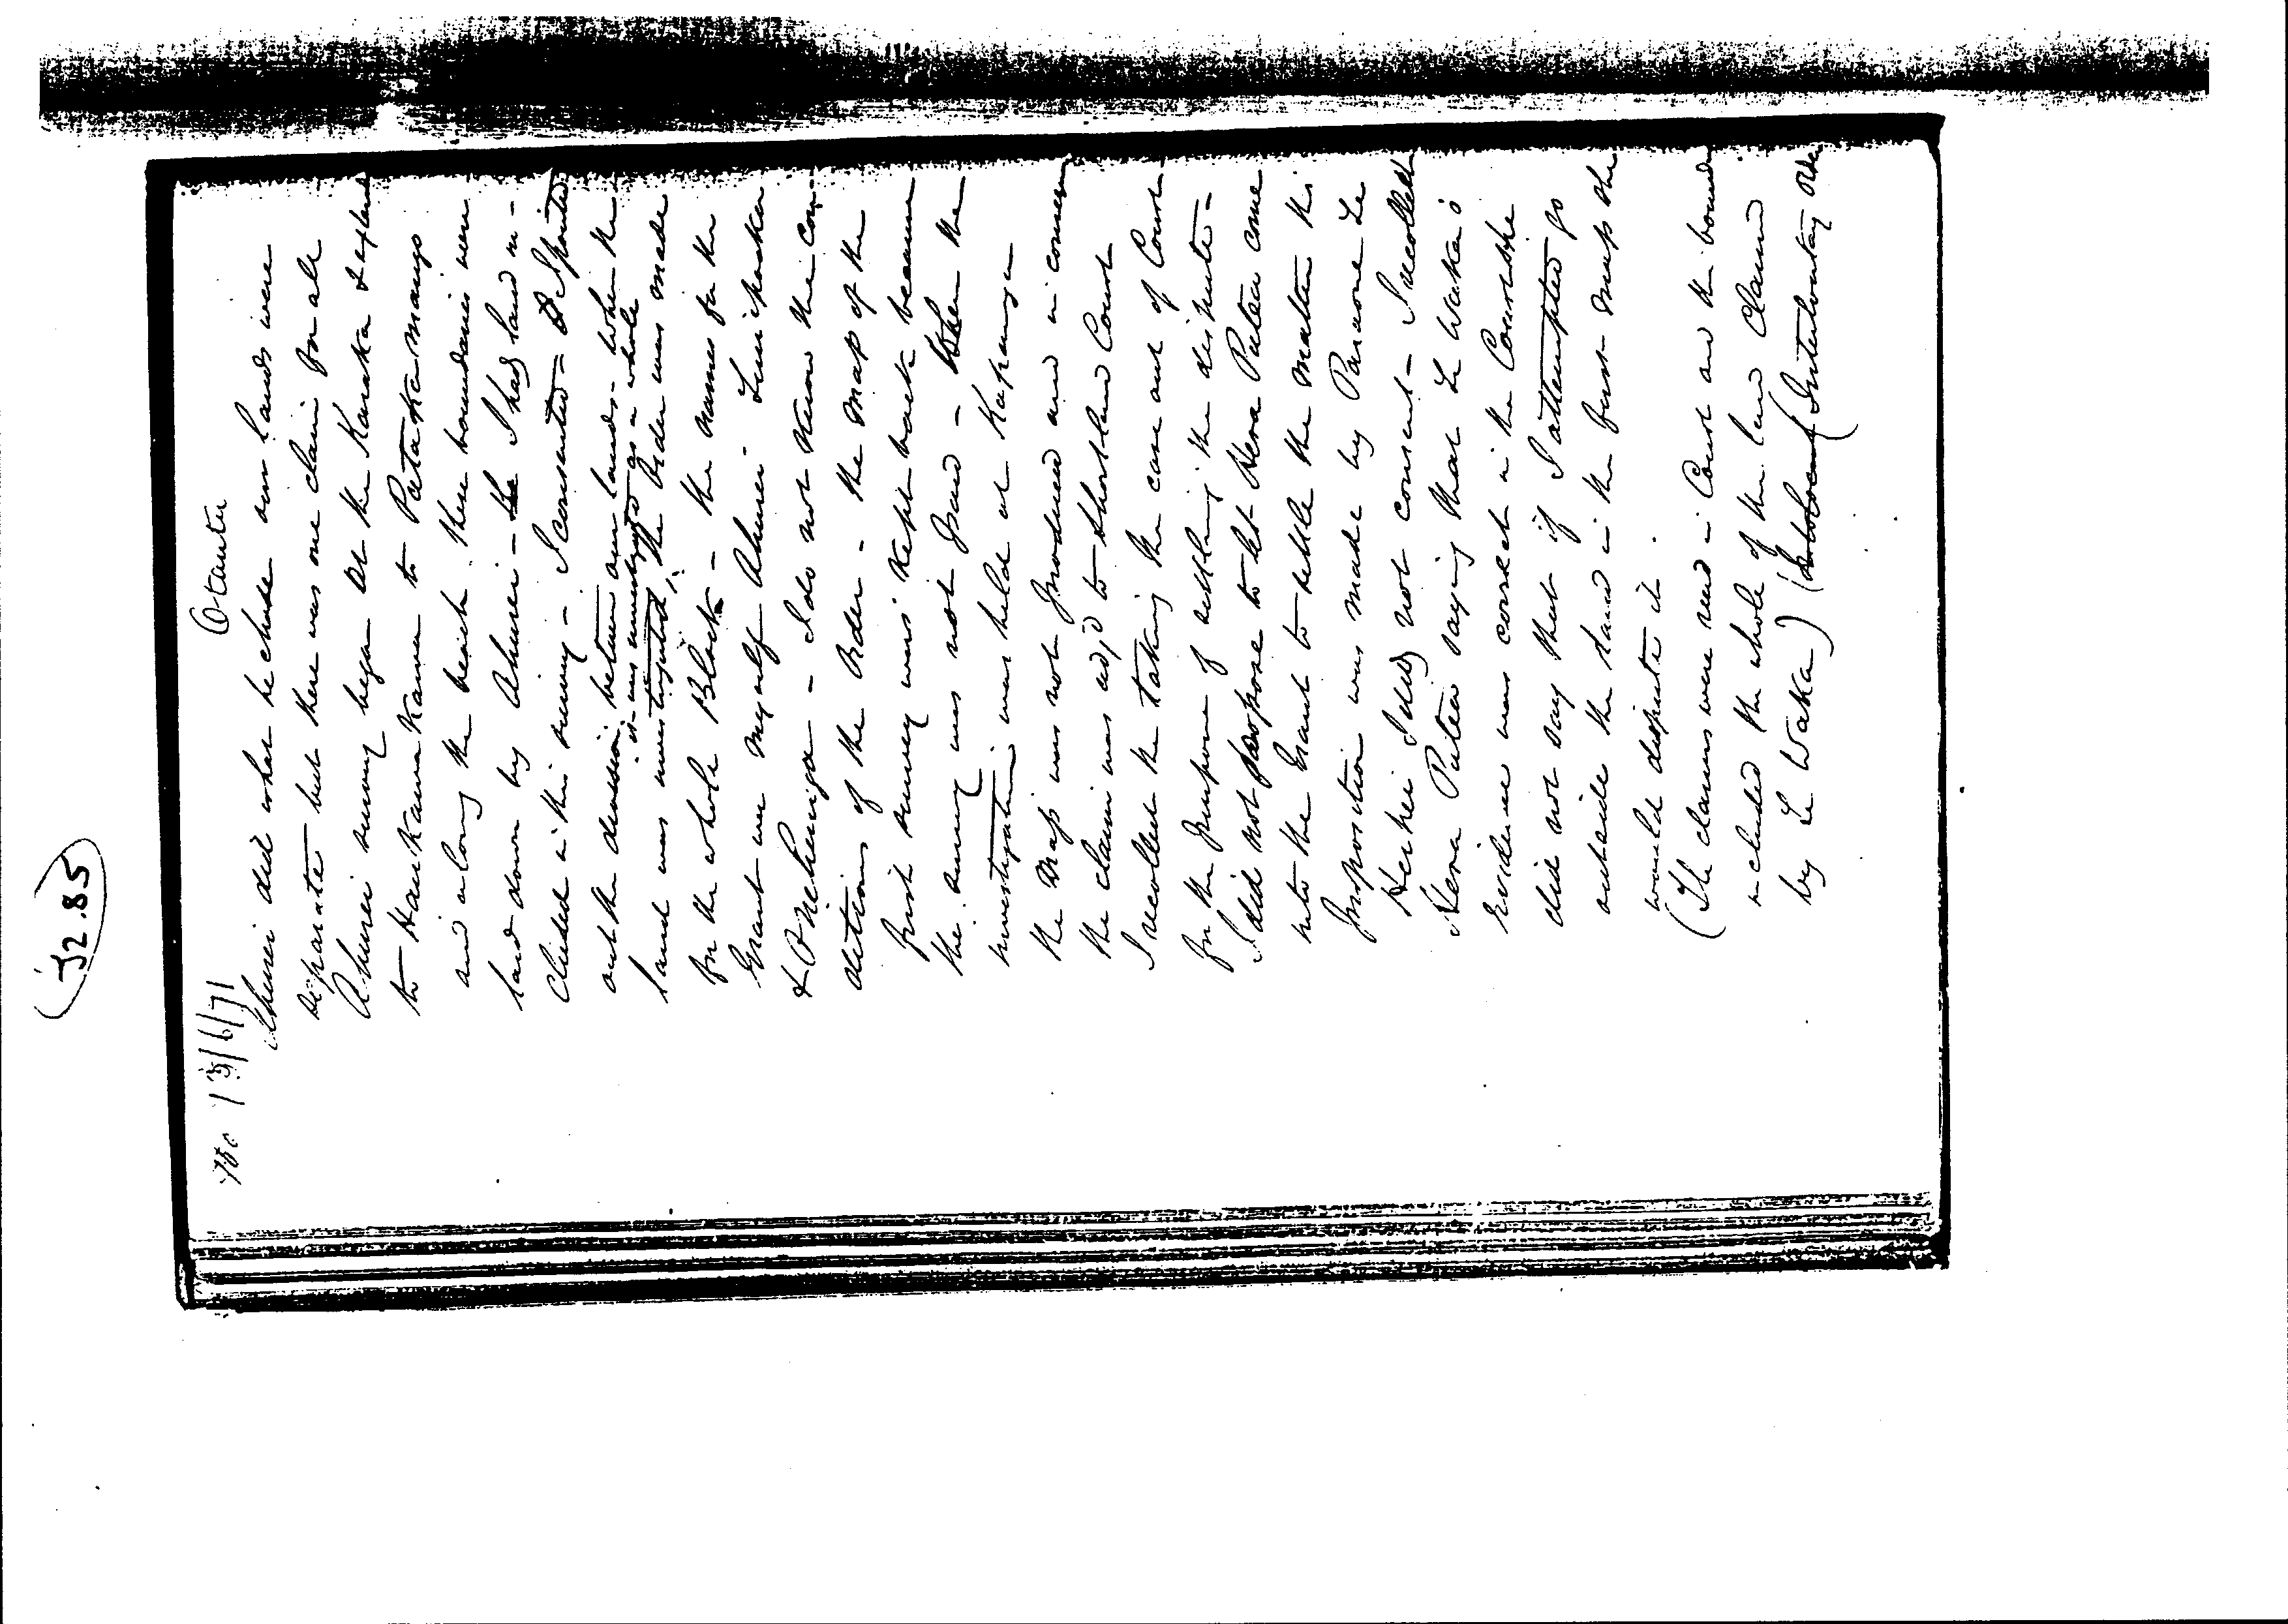 (J2.85)
13/6/71
Otautu
Ahurei did what he chose our lands were
separate but there was one claim for all
Ahurei survey began at the Karaka &
to Haukamakama to Patakamango
and along the beach. These boundaries were
laid down by Ahurei - I had land in-
cluded in this survey - I consented - I pointed
out the division between our lands - when the
it was investigated as a whole
land was investigated, the Order was made
for the whole Block - the names for the
Grant were myself Ahurei
& - I do not know the con-
ditions of the Order - the map of the
first survey was kept back because
the survey was not paid - When the
investigation was held at Kapanga
the Map was not produced and in
the claim was adjd to Shortland Court
I recollect the taking the case out of Court
for the purpose of settling the dispute -
I did not propose to let Hera Putea come
into the Grant to settle the matter this
proposition was made by Paraone Te
I did not consent - I recollect
Hera Putea saying that Te Waka's
Evidence was correct in the Court she
did not say that if I attempted go
outside the land in the first map she
would dispute it.
(The claims were read in Court and the bound
included the whole of the land claimed
by Te Waka) (Interlocutory